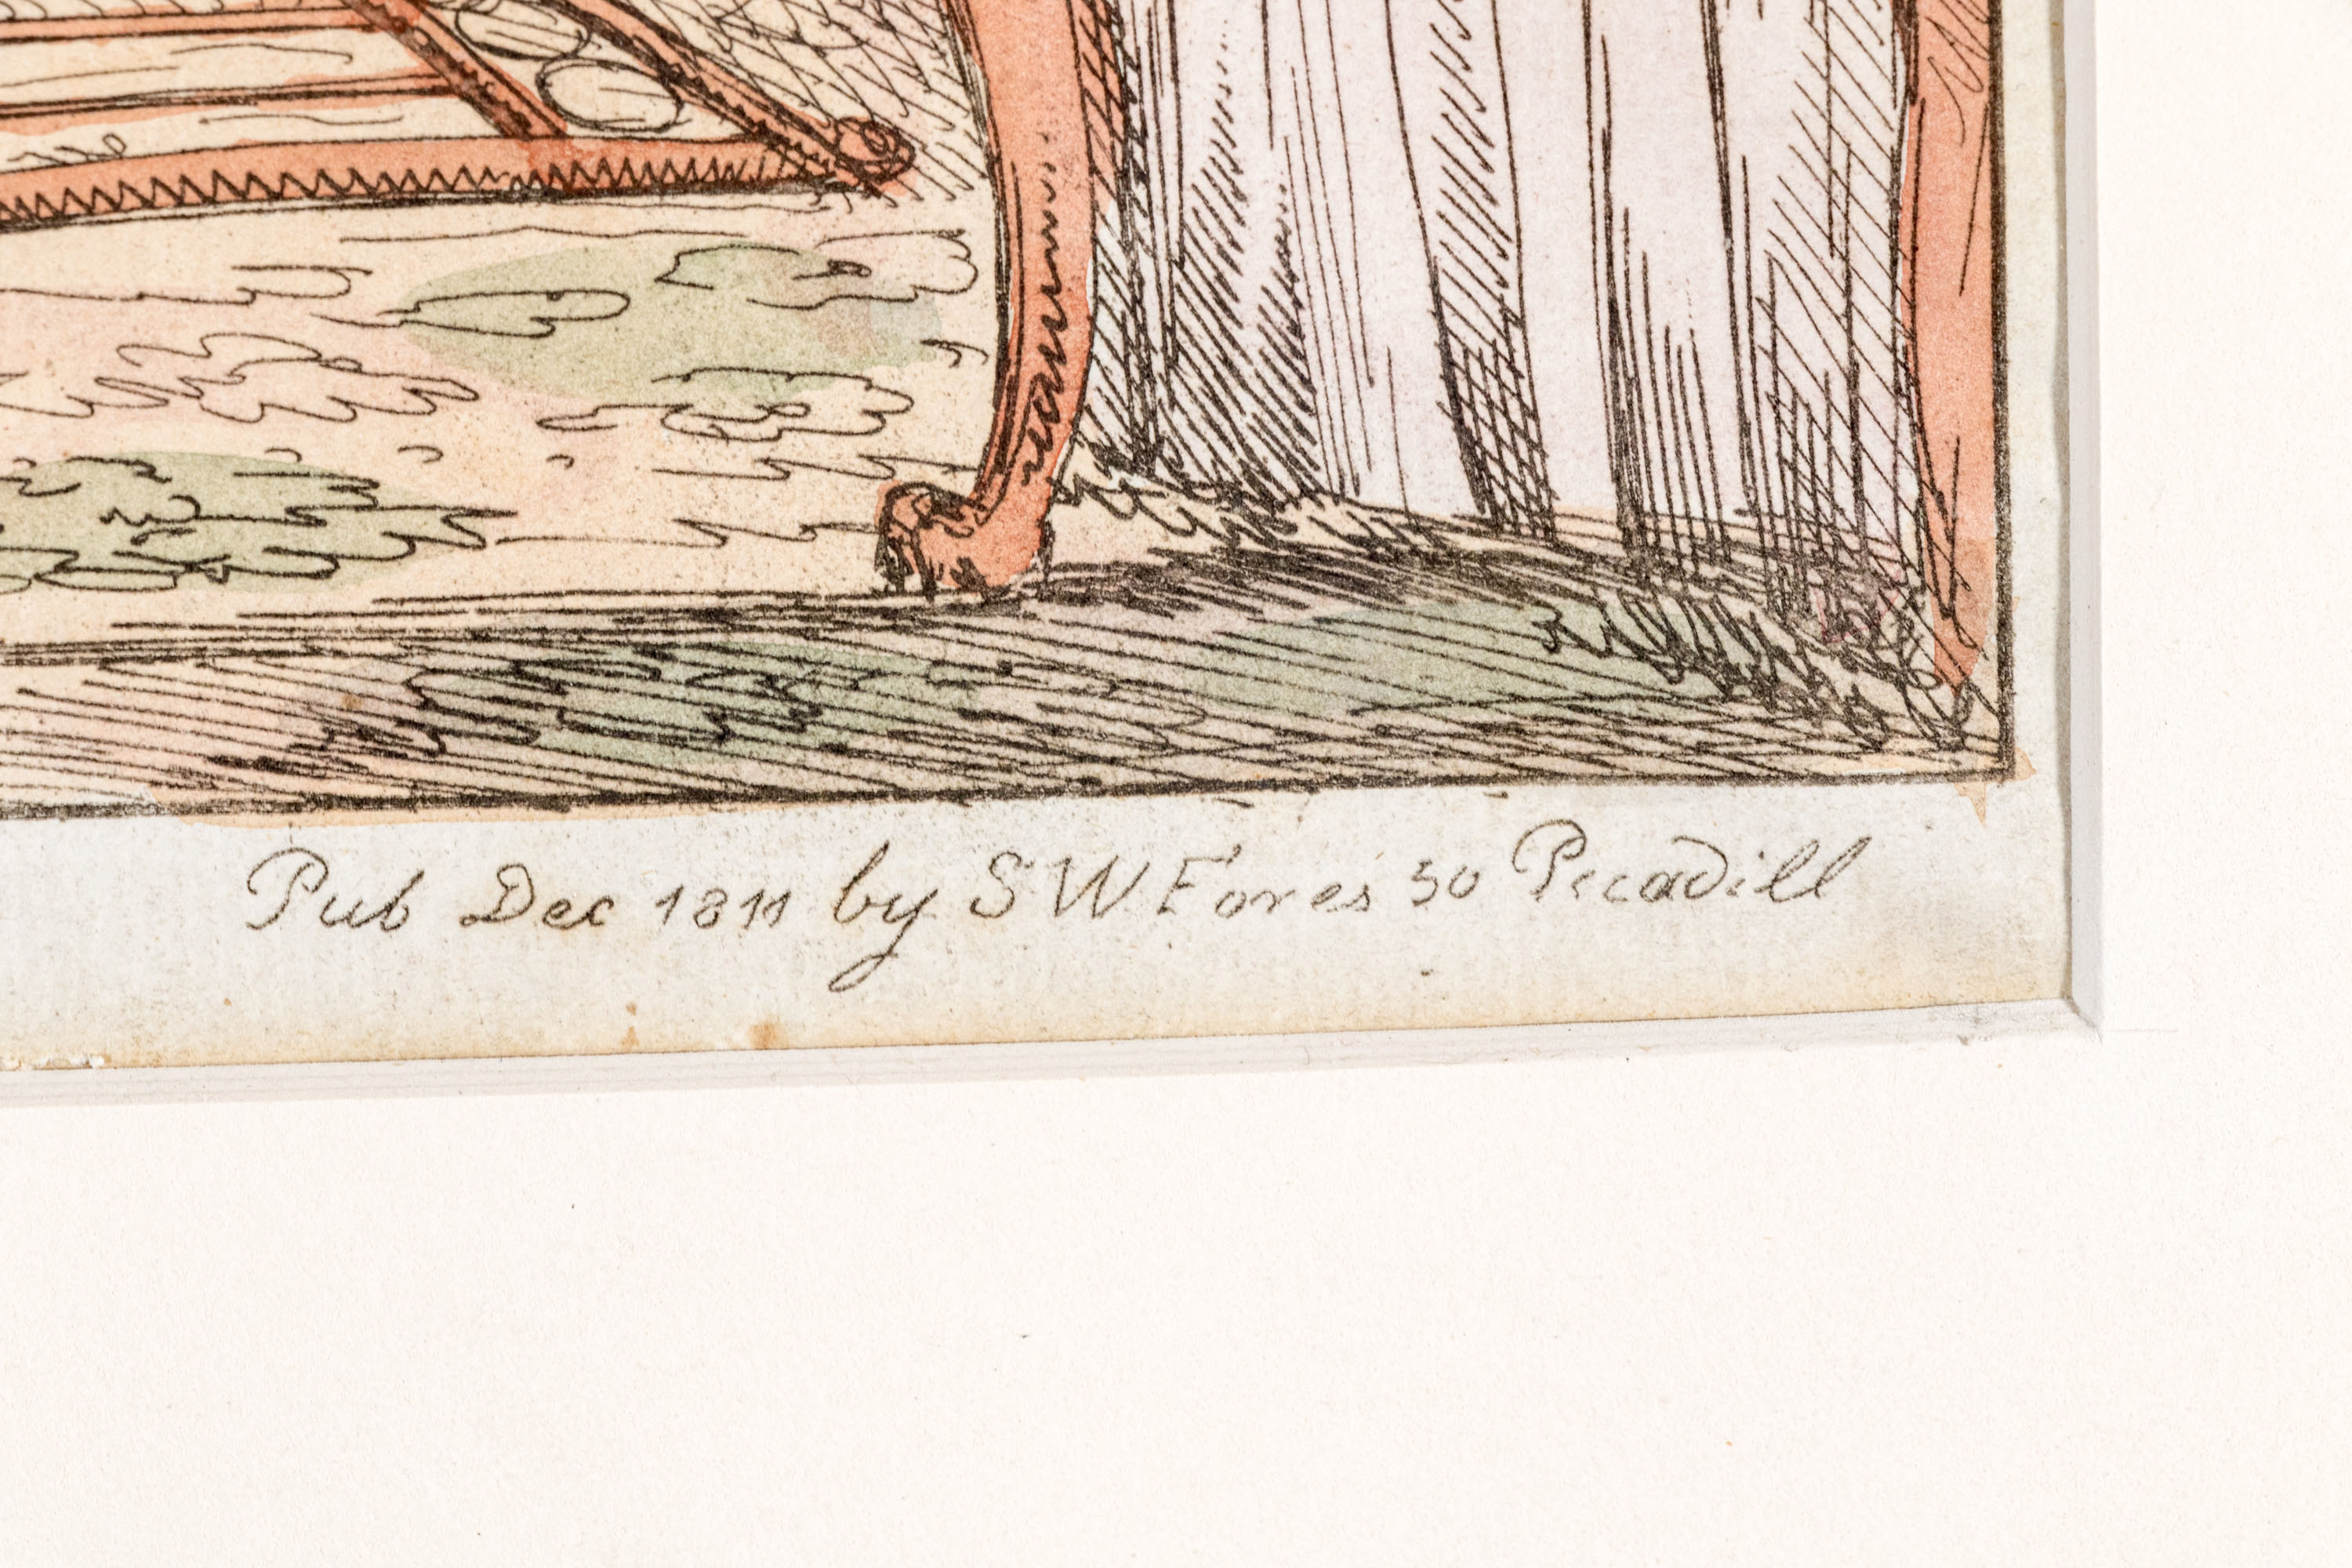 Pub Dec 1811 by S W Fores 50 Piccadill